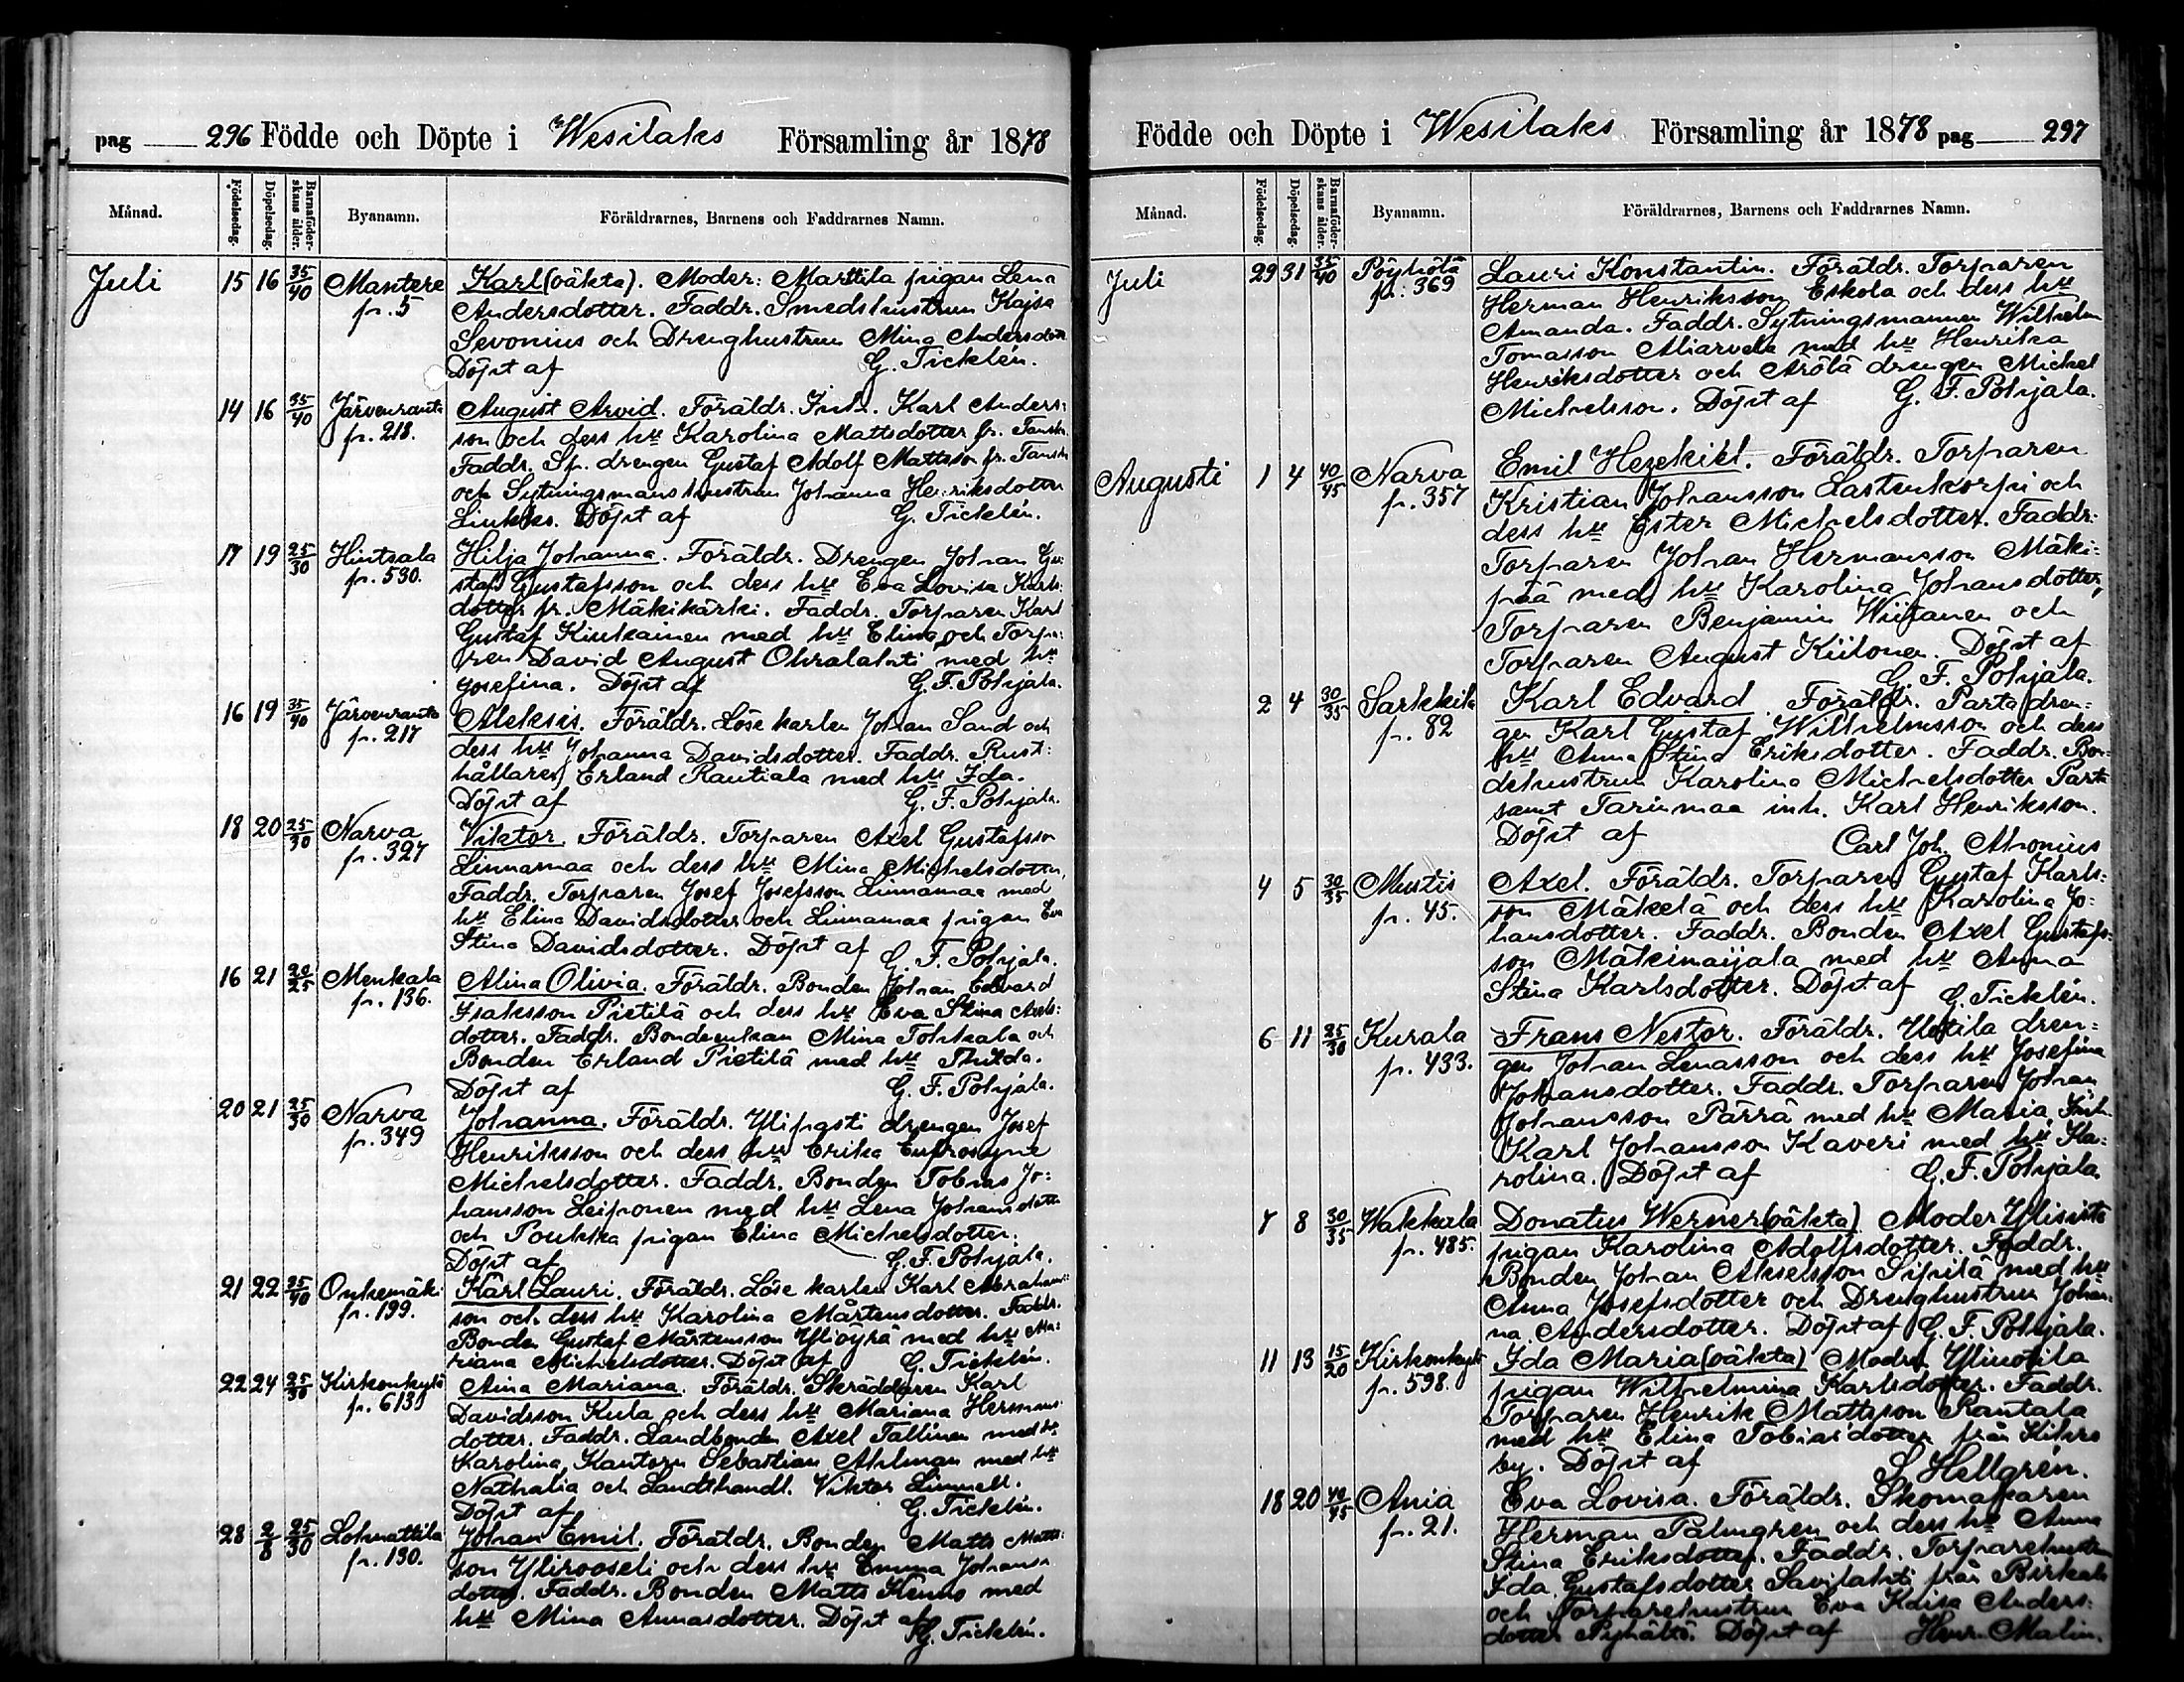 pag 296 Födde och Döpte i Wesilaks Församling år 1878
Månad. Födelsedag. Döpelsedag. Barnaföderskans ålder. Byanamn. Föräldrarnes, Barnens och Faddrarnes Namn.
Juli 15 16 35/40 Mantere Karl (oäkta). Moder: Marttila pigan Lena
p. 5 Andersdotter. Faddr. Smedshustrun Kajsa
Sevonius och Drenghustrun Mina Andersdott
Döpt af G. Ticklén.
14 16 35/40 Järvenranta August Arvid. Föräldr. Inh. Karl Anders-
p. 218. son och dess hu Karolina Mattsdotter fr.
Faddr. Sp. drengen Gustaf Adolf Mattsson fr.
och Sytningsmanshustrun Johanna Henriksdotter
Liukko. Döpt af G. Ticklén.
17 19 25/30 Hintsala Hilja Johanna. Föräldr. Drengen Johan Gu-
p. 590. staf Gustafsson och dess hu Eva Lovisa Karls-
dotter fr. Mäkikärki. Faddr. Torparen Karl
Gustaf Kiukainen med hu Elina och Torpa-
ren David August Ohralahti med hu
Josefina. Döpt af G. F. Pohjala.
16 19 35/40 Järvenranta Aleksis. Föräldr. Löse karlen Johan Sand och
p. 217 dess hu Johanna Davidsdotter. Faddr. Rust-
hållaren Erland Rautiala med hu Ida.
Döpt af G. F. Pohjala.
18 20 25/30 Narva Viktor. Föräldr. Torparen Axel Gustafsson
p. 327 Linnamaa och dess hu Mina Michelsdotter,
Faddr. Torparen Josef Josefsson Linnamaa med
hu Elina Davidsdotter och Linnamaa pigan Eva
Stina Davidsdotter. Döpt af G. F. Pohjala.
16 21 20/25 Menkala Alina Olivia. Föräldr. Bonden Johan Edvard
p. 136. Isaksson Pietilä och dess hu Eva Stina Axels-
dotter. Faddr. Bondeenkan Mina Tohkala och
Bonden Erland Pietilä med hu Thilda.
Döpt af G. F. Pohjala.
20 21 25/30 Narva Johanna. Föräldr. Ylipasti drengen Josef
p. 349 Henriksson och dess hu Erika Eufrosyne
Michelsdotter. Faddr. Bonden Tobias Jo-
hansson Leiponen med hu Lena Johansdotter
och Poukka pigan Elina Michelsdotter.
Döpt af G. F. Pohjala.
21 22 35/40 Onkemäki Karl Lauri. Föräldr. Löse karlen Karl Abrahams-
p. 199. son och dess hu Karolina Mårtensdotter. Faddr.
Bonden Gustaf Mårtensson Yliöyrä med hu Ma-
riana Michelsdotter. Döpt af G. Ticklén.
22 24 25/30 Kirkonkylä Aina Mariana. Föräldr. Skräddaren Karl
p. 613 Davidsson Kula och dess hu Mariana Hermans-
dotter. Faddr. Landbonden Axel Tallinen med hu
Karolina, Kantorn Sebastian Ahlman med hu
Nathalia och Landthandl. Viktor Linnell.
Döpt af G. Ticklén.
28 2/8 25/30 Lohmattila Johan Emil. Föräldr. Bonden Matts Matts-
p. 190. son Ylirooseli och dess hu Emma Johans-
dotter. Faddr. Bonden Matts Kenno med
hu Mina Annasdotter. Döpt af
G. Ticklén.
Födde och Döpte i Wesilaks Församling år 1878 pag 297
Månad. Födelsedag. Döpelsedag. Barnaföderskans ålder. Byanamn. Föräldrarnes, Barnens och Faddrarnes Namn.
Juli 29 31 35/40 Pöyhölä Lauri Konstantin. Föräldr. Torparen
p. 369 Herman Henriksson Eskola och dess hu
Amanda. Faddr. Sytningsmannen Wilhelm
Tomasson Aliarvela med hu Henrika
Henriksdotter och Arölä drengen Michel
Michelsson. Döpt af G. F. Pohjala.
Augusti 1 4 40/45 Narva Emil Hezekiel. Föräldr. Torparen
p. 357 Kristian Johansson Lastenkorpi och
dess hu Ester Michelsdotter. Faddr.
Torparen Johan Hermansson Mäki-
pää med hu Karolina Johansdotter,
Torparen Benjamin Wiitanen och
Torparen August Kiilonen. Döpt af
G. F. Pohjala.
2 4 30/35 Sarkkila Karl Edvard. Föräldr. Parta dren-
p. 82 gen Karl Gustaf Wilhelmsson och dess
hu Anna Stina Eriksdotter. Faddr. Bon-
dehustrun Karolina Michelsdotter Parta
samt Tarinmaa inh. Karl Henriksson.
Döpt af Carl Joh. Ahonius
4 5 30/35 Mustis Axel. Föräldr. Torparen Gustaf Karls-
p. 45. son Mäkelä och dess hu Karolina Jo-
hansdotter. Faddr. Bonden Axel Gustafs-
son Mäkimaijala med hu Anna
Stina Karlsdotter. Döpt af G. Ticklén.
6 11 25/30 Kurala Frans Nestor. Föräldr. Uotila dren-
p. 433. gen Johan Lenasson och dess hu Josefina
Johansdotter. Faddr. Torparen Johan
Johansson Pärrä med hu Maria, Inh.
Karl Johansson Kaveri med hu Ka-
rolina. Döpt af G. F. Pohjala.
7 8 30/35 Wakkala Donatus Werner (oäkta). Moder Ylisisto
p. 485. pigan Karolina Adolfsdotter. Faddr.
Bonden Johan Akselsson Sipilä med hu
Anna Josefsdotter och Drenghustrun Johan-
na Andersdotter. Döpt af G. F. Pohjala.
11 13 15/20 Kirkonkylä Ida Maria (oäkta) Moder Ylinotila
p. 598. pigan Wilhelmina Karlsdotter. Faddr.
Torparen Henrik Mattsson Rantala
med hu Elina Tobiasdotter från
by. Döpt af S. Hellgrén.
18 20 40/45 Ania Eva Lovisa. Föräldr. Skomakaren
p. 21. Herman Palmgren och dess hu Anna
Stina Eriksdotter. Faddr. Torparehustrun
Ida Gustafsdotter Savilahti från Birkala
och Torparehustrun Eva Kaisa Anders-
dotter Pyhältö. Döpt af Henr. Malin.